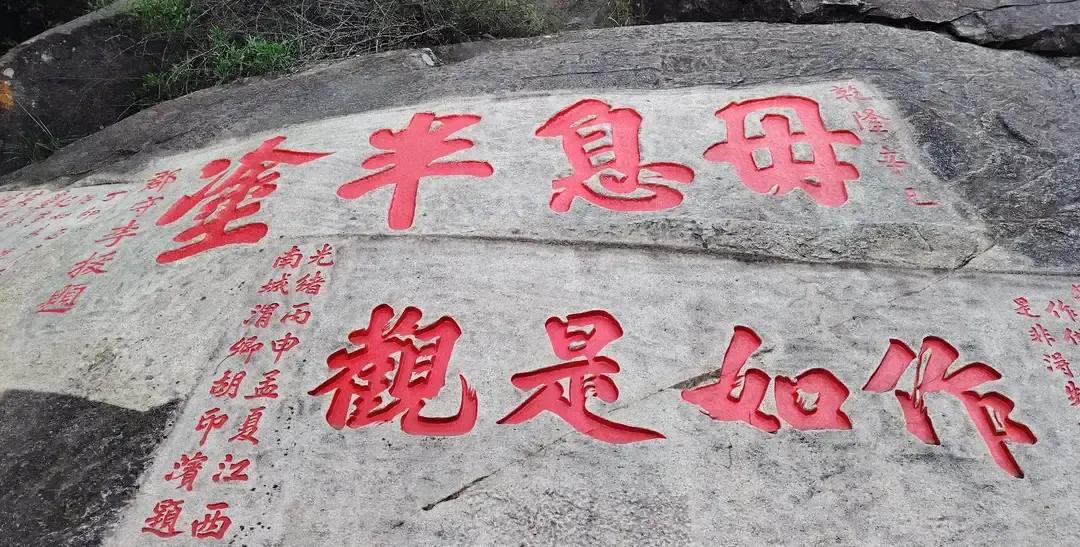 乾隆辛巳
毋息半塗
郡守李拔題
作如是觀
光緒丙申孟夏江西
南城渭卿胡印濱題
是非得